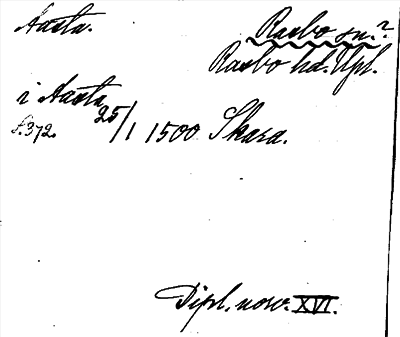 Aasta.
Rasbo sn.?
Rasbo hd. Upl.
i Aasta 25/1 1500 Skara.
s. 372.
Dipl. norv. XVI.